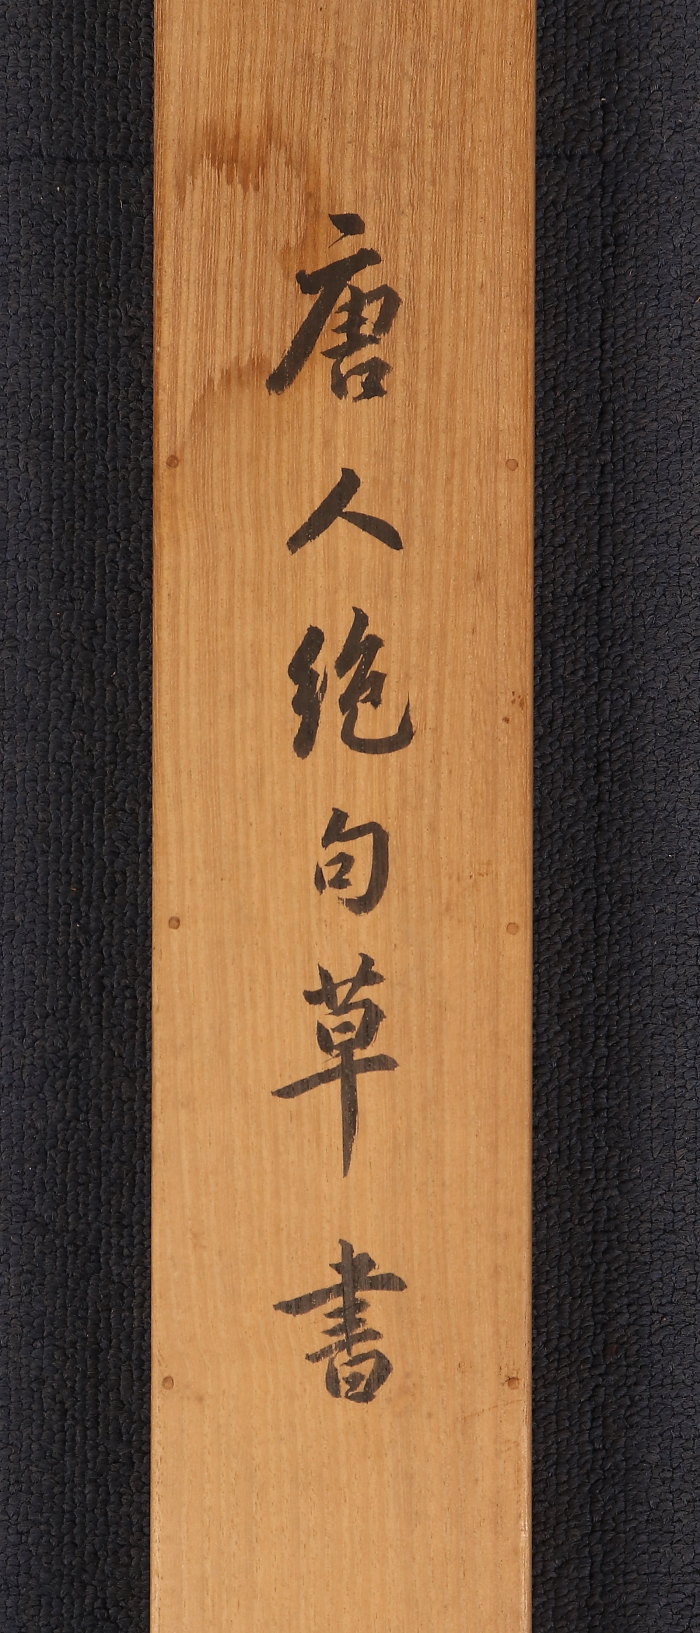 唐人絶句草書